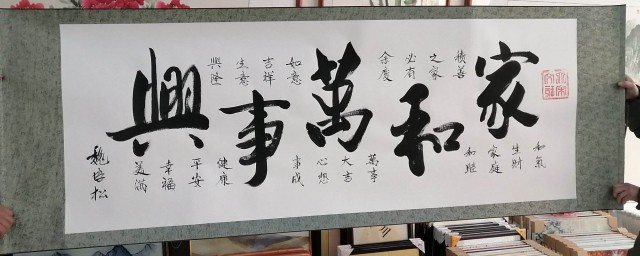 家和萬事興
和氣
生財
家庭
和睦
積善
之家
必有
余慶
萬事
大吉
心想
事成
如意
吉祥
生意
興隆
健康
平安
幸福
美滿